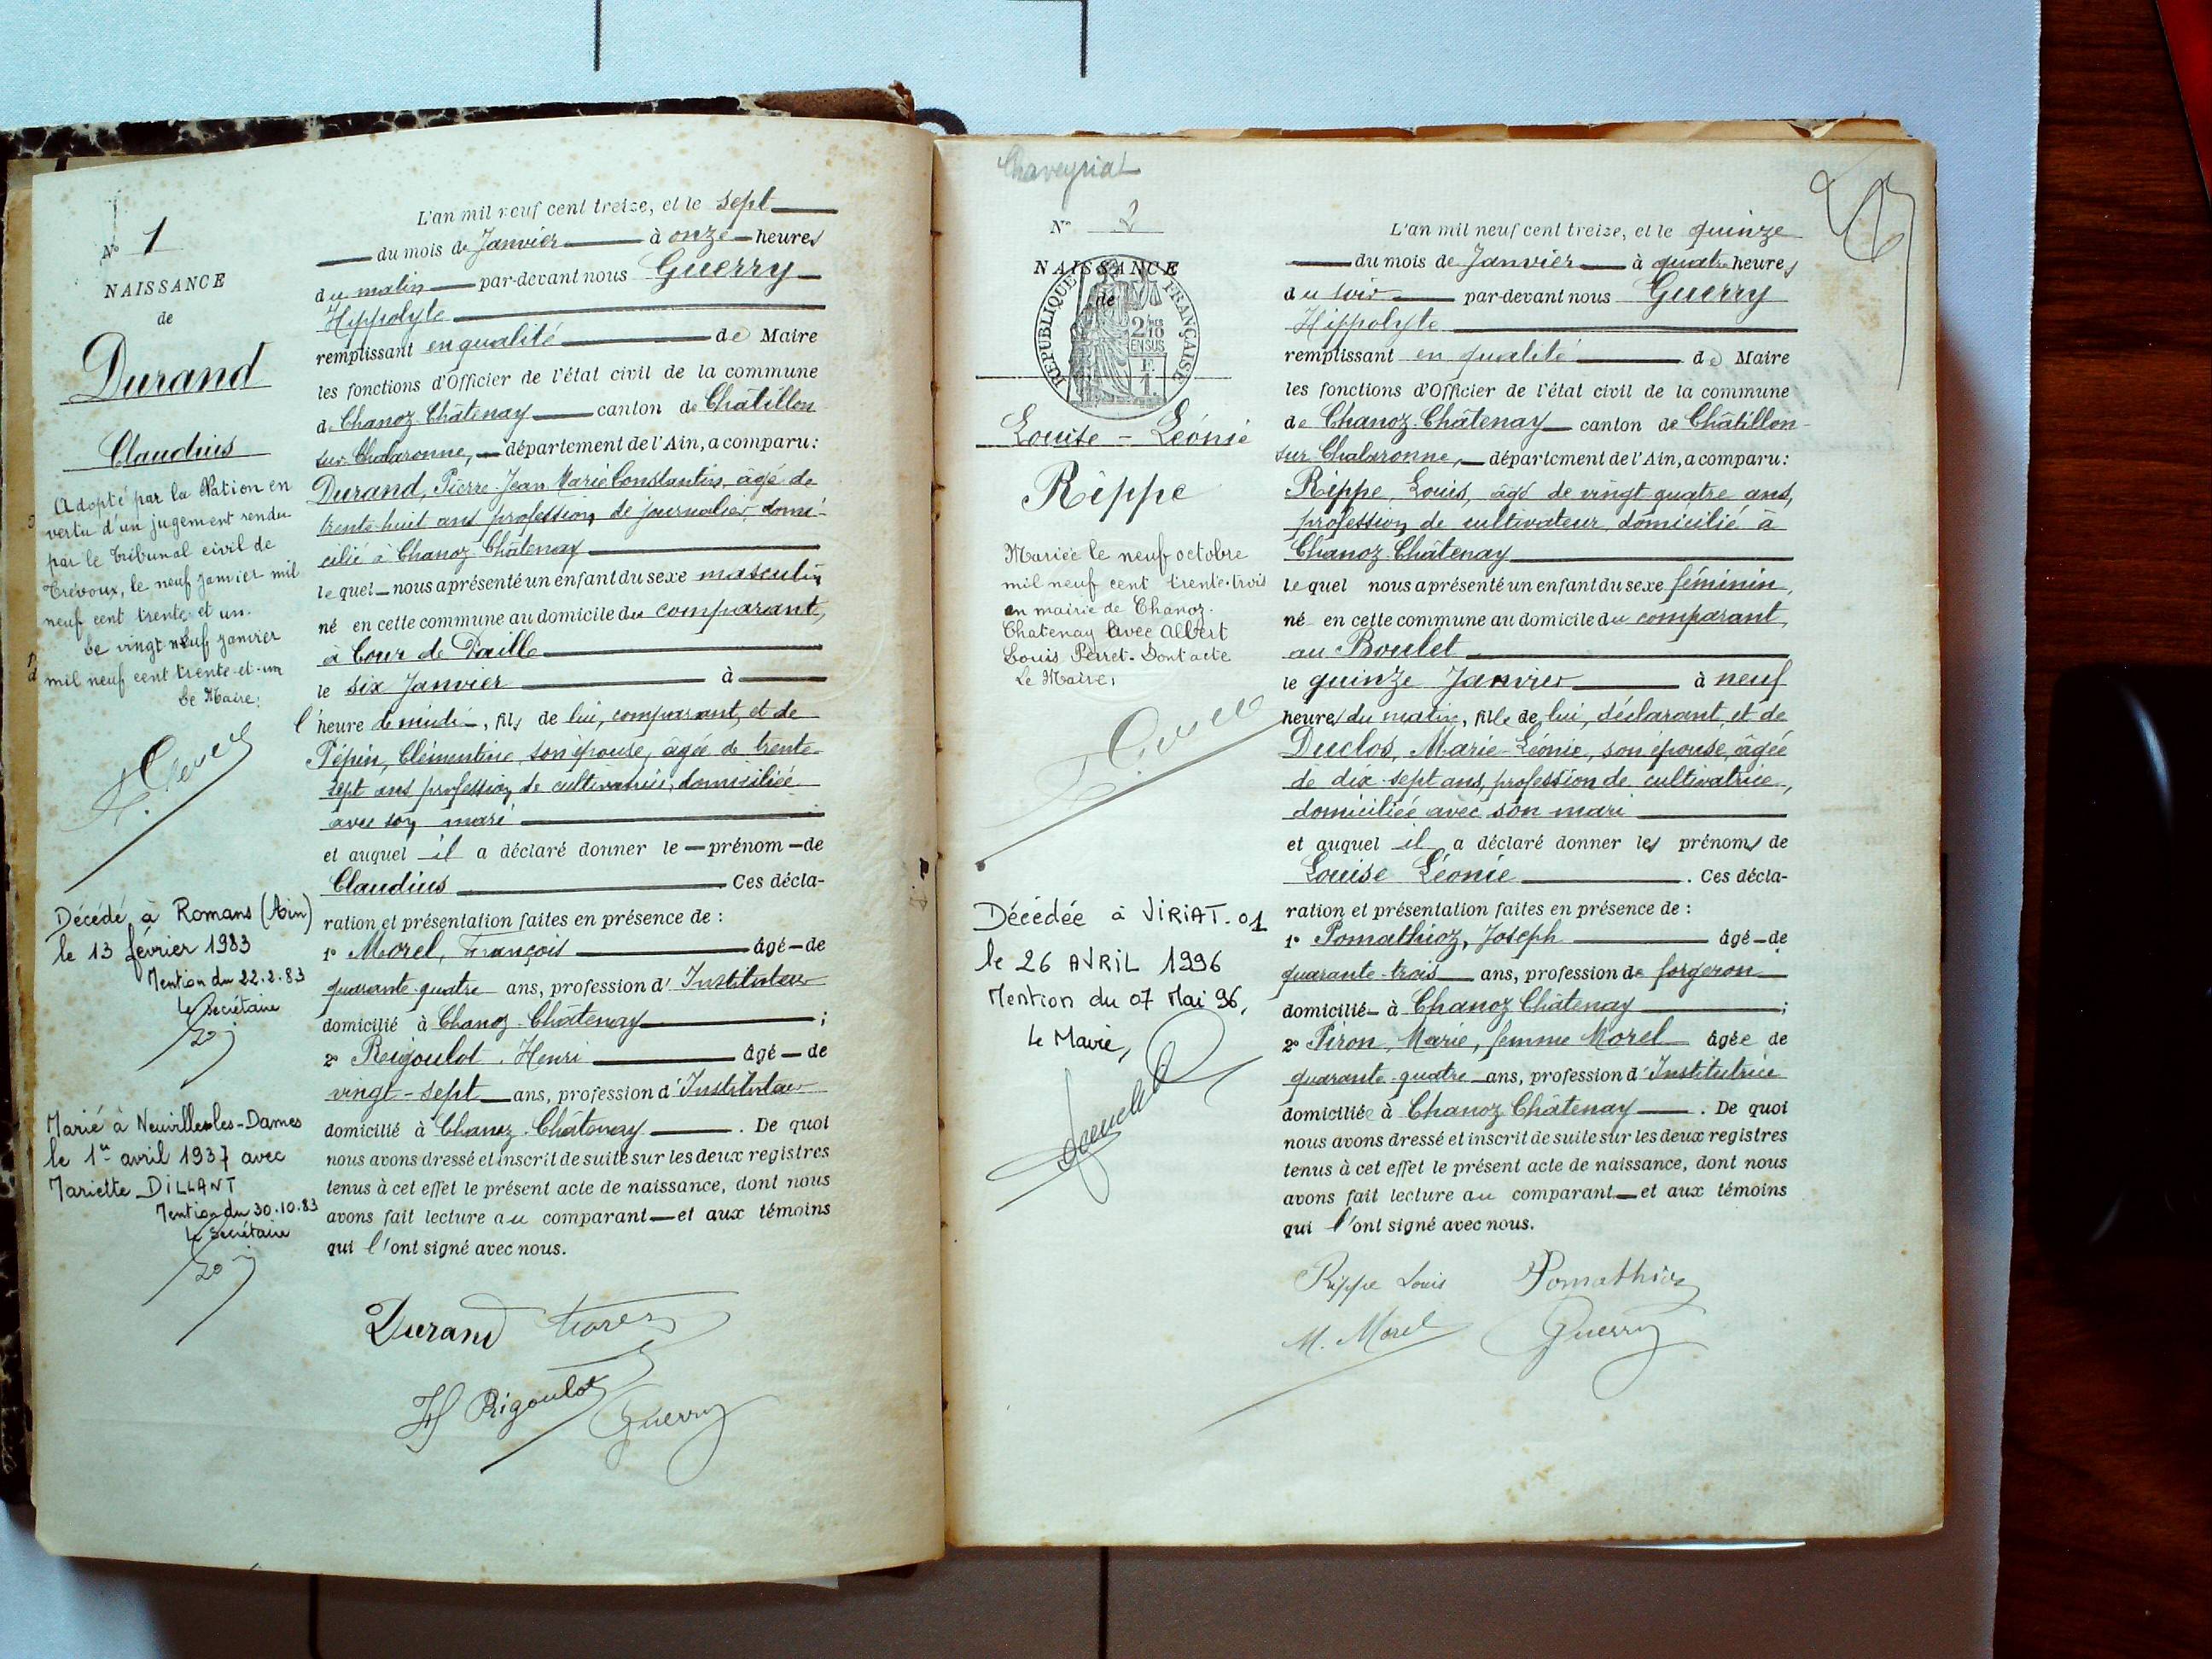 N° 1
NAISSANCE
de
Durand
Claudius
Adopté par la Nation en
vertu d'un jugement rendu
par le Tribunal civil de
Trévoux, le neuf janvier mil
neuf cent trente et un.
Le vingt neuf janvier
mil neuf cent trente-et-un
Le Maire:
Décédé à Romans (Ain)
le 13 février 1983
Mention du 22.2.83
Le Secrétaire
Marié à Neuville-les-Dames
le 1er avril 1937 avec
Mariette DILLANT
Mention du 30.10.83
Le Secrétaire
L'an mil neuf cent treize, et le sept
du mois de Janvier à onze heures
du matin par-devant nous Guerry
Hippolyte
remplissant en qualité de Maire
les fonctions d'Officier de l'état civil de la commune
de Chanoz-Châtenay canton de Châtillon
sur-Chalaronne, département de l'Ain, a comparu:
Durand, Pierre-Jean Marie Constantin, âgé de
trente-huit ans profession de journalier, domi-
cilié à Chanoz-Châtenay
lequel nous a présenté un enfant du sexe masculin
né en cette commune au domicile du comparant,
à Cour de Paille
le six Janvier à
l'heure de midi, fils de lui, comparant, et de
Pépin, Clémentine, son épouse, âgée de trente-
sept ans profession de cultivatrice, domiciliée
avec son mari
et auquel il a déclaré donner le prénom de
Claudius Ces décla-
ration et présentation faites en présence de :
1° Morel, François âgé de
quarante-quatre ans, profession d'Instituteur
domicilié à Chanoz-Châtenay ;
2° Reigoulot, Henri âgé de
vingt-sept ans, profession d'Instituteur
domicilié à Chanoz-Châtenay . De quoi
nous avons dressé et inscrit de suite sur les deux registres
tenus à cet effet le présent acte de naissance, dont nous
avons fait lecture au comparant et aux témoins
qui l'ont signé avec nous.
Durand Morel
H Rigoulot Guerry
Chaveyriat
N° 2
NAISSANCE
de
REPUBLIQUE FRANÇAISE
2/10 EN SUS
1 F.
Louise-Léonie
Rippe
Mariée le neuf octobre
mil neuf cent trente-trois
en mairie de Chanoz-
Chatenay avec Albert
Louis Perret. Dont acte
Le Maire,
Décédée à VIRIAT.01
le 26 AVRIL 1996
Mention du 07 Mai 96,
Le Maire,
L'an mil neuf cent treize, et le quinze
du mois de Janvier à quatre heures
du soir par-devant nous Guerry
Hippolyte
remplissant en qualité de Maire
les fonctions d'Officier de l'état civil de la commune
de Chanoz-Châtenay canton de Châtillon-
sur Chalaronne, département de l'Ain, a comparu:
Rippe, Louis, âgé de vingt quatre ans,
profession de cultivateur, domicilié à
Chanoz-Châtenay
lequel nous a présenté un enfant du sexe féminin,
né en cette commune au domicile du comparant,
au Boulet
le quinze Janvier à neuf
heures du matin, fille de lui, déclarant, et de
Duclos, Marie-Léonie, son épouse, âgée
de dix-sept ans, profession de cultivatrice,
domiciliée avec son mari
et auquel il a déclaré donner les prénoms de
Louise Léonie . Ces décla-
ration et présentation faites en présence de :
1° Pomathioz, Joseph âgé de
quarante-trois ans, profession de forgeron
domicilié à Chanoz Châtenay ;
2° Piron, Marie, femme Morel âgée de
quarante-quatre ans, profession d'Institutrice
domiciliée à Chanoz Châtenay . De quoi
nous avons dressé et inscrit de suite sur les deux registres
tenus à cet effet le présent acte de naissance, dont nous
avons fait lecture au comparant et aux témoins
qui l'ont signé avec nous.
Rippe Louis Pomathioz
M. Morel Guerry